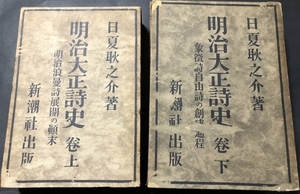 日夏耿之介著
明治大正詩史 卷下
象徴詩自由詩の創
過程
新潮社出版
日夏耿之介著
明治大正詩史 卷上
明治浪曼詩展開の顚末
新潮社出版